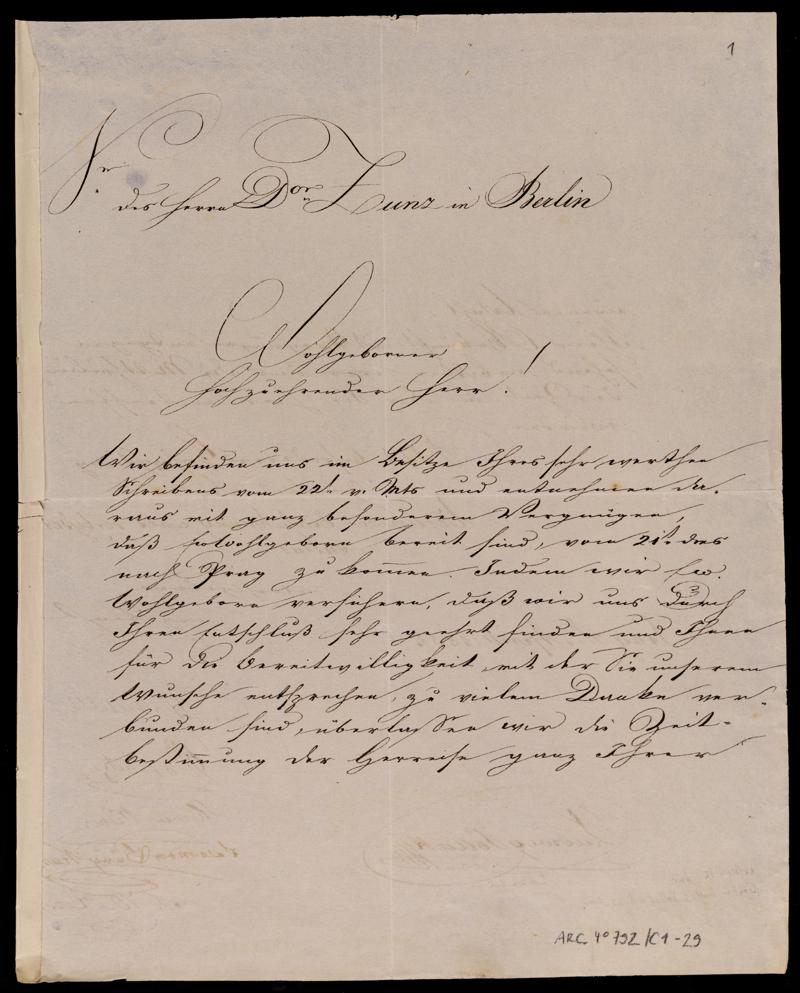 1
Sr
des Herrn Dor Zunz in Berlin
Wohlgeborner
Hochzuehrender Herr!
Wir befinden uns im Besitze Ihres sehr werthen
Schreibens vom 22t. v. Mts und entnehmen da-
raus mit ganz besonderem Vergnügen,
daß Ew Wohlgeborn bereit sind, vom 21t. dMs
nach Prag zu kommen. Indem wir Ew.
Wohlgeborn versichern, daß wir uns durch
Ihren Entschluß sehr geehrt finden und Ihnen
für die Bereitwilligkeit, mit der Sie unserem
Wunsche entsprechen, zu vielem Danke ver-
bunden sind, überlassen wir die Zeit-
bestimmung der Herreise ganz Ihrer
ARC. 4° 792/C1-29